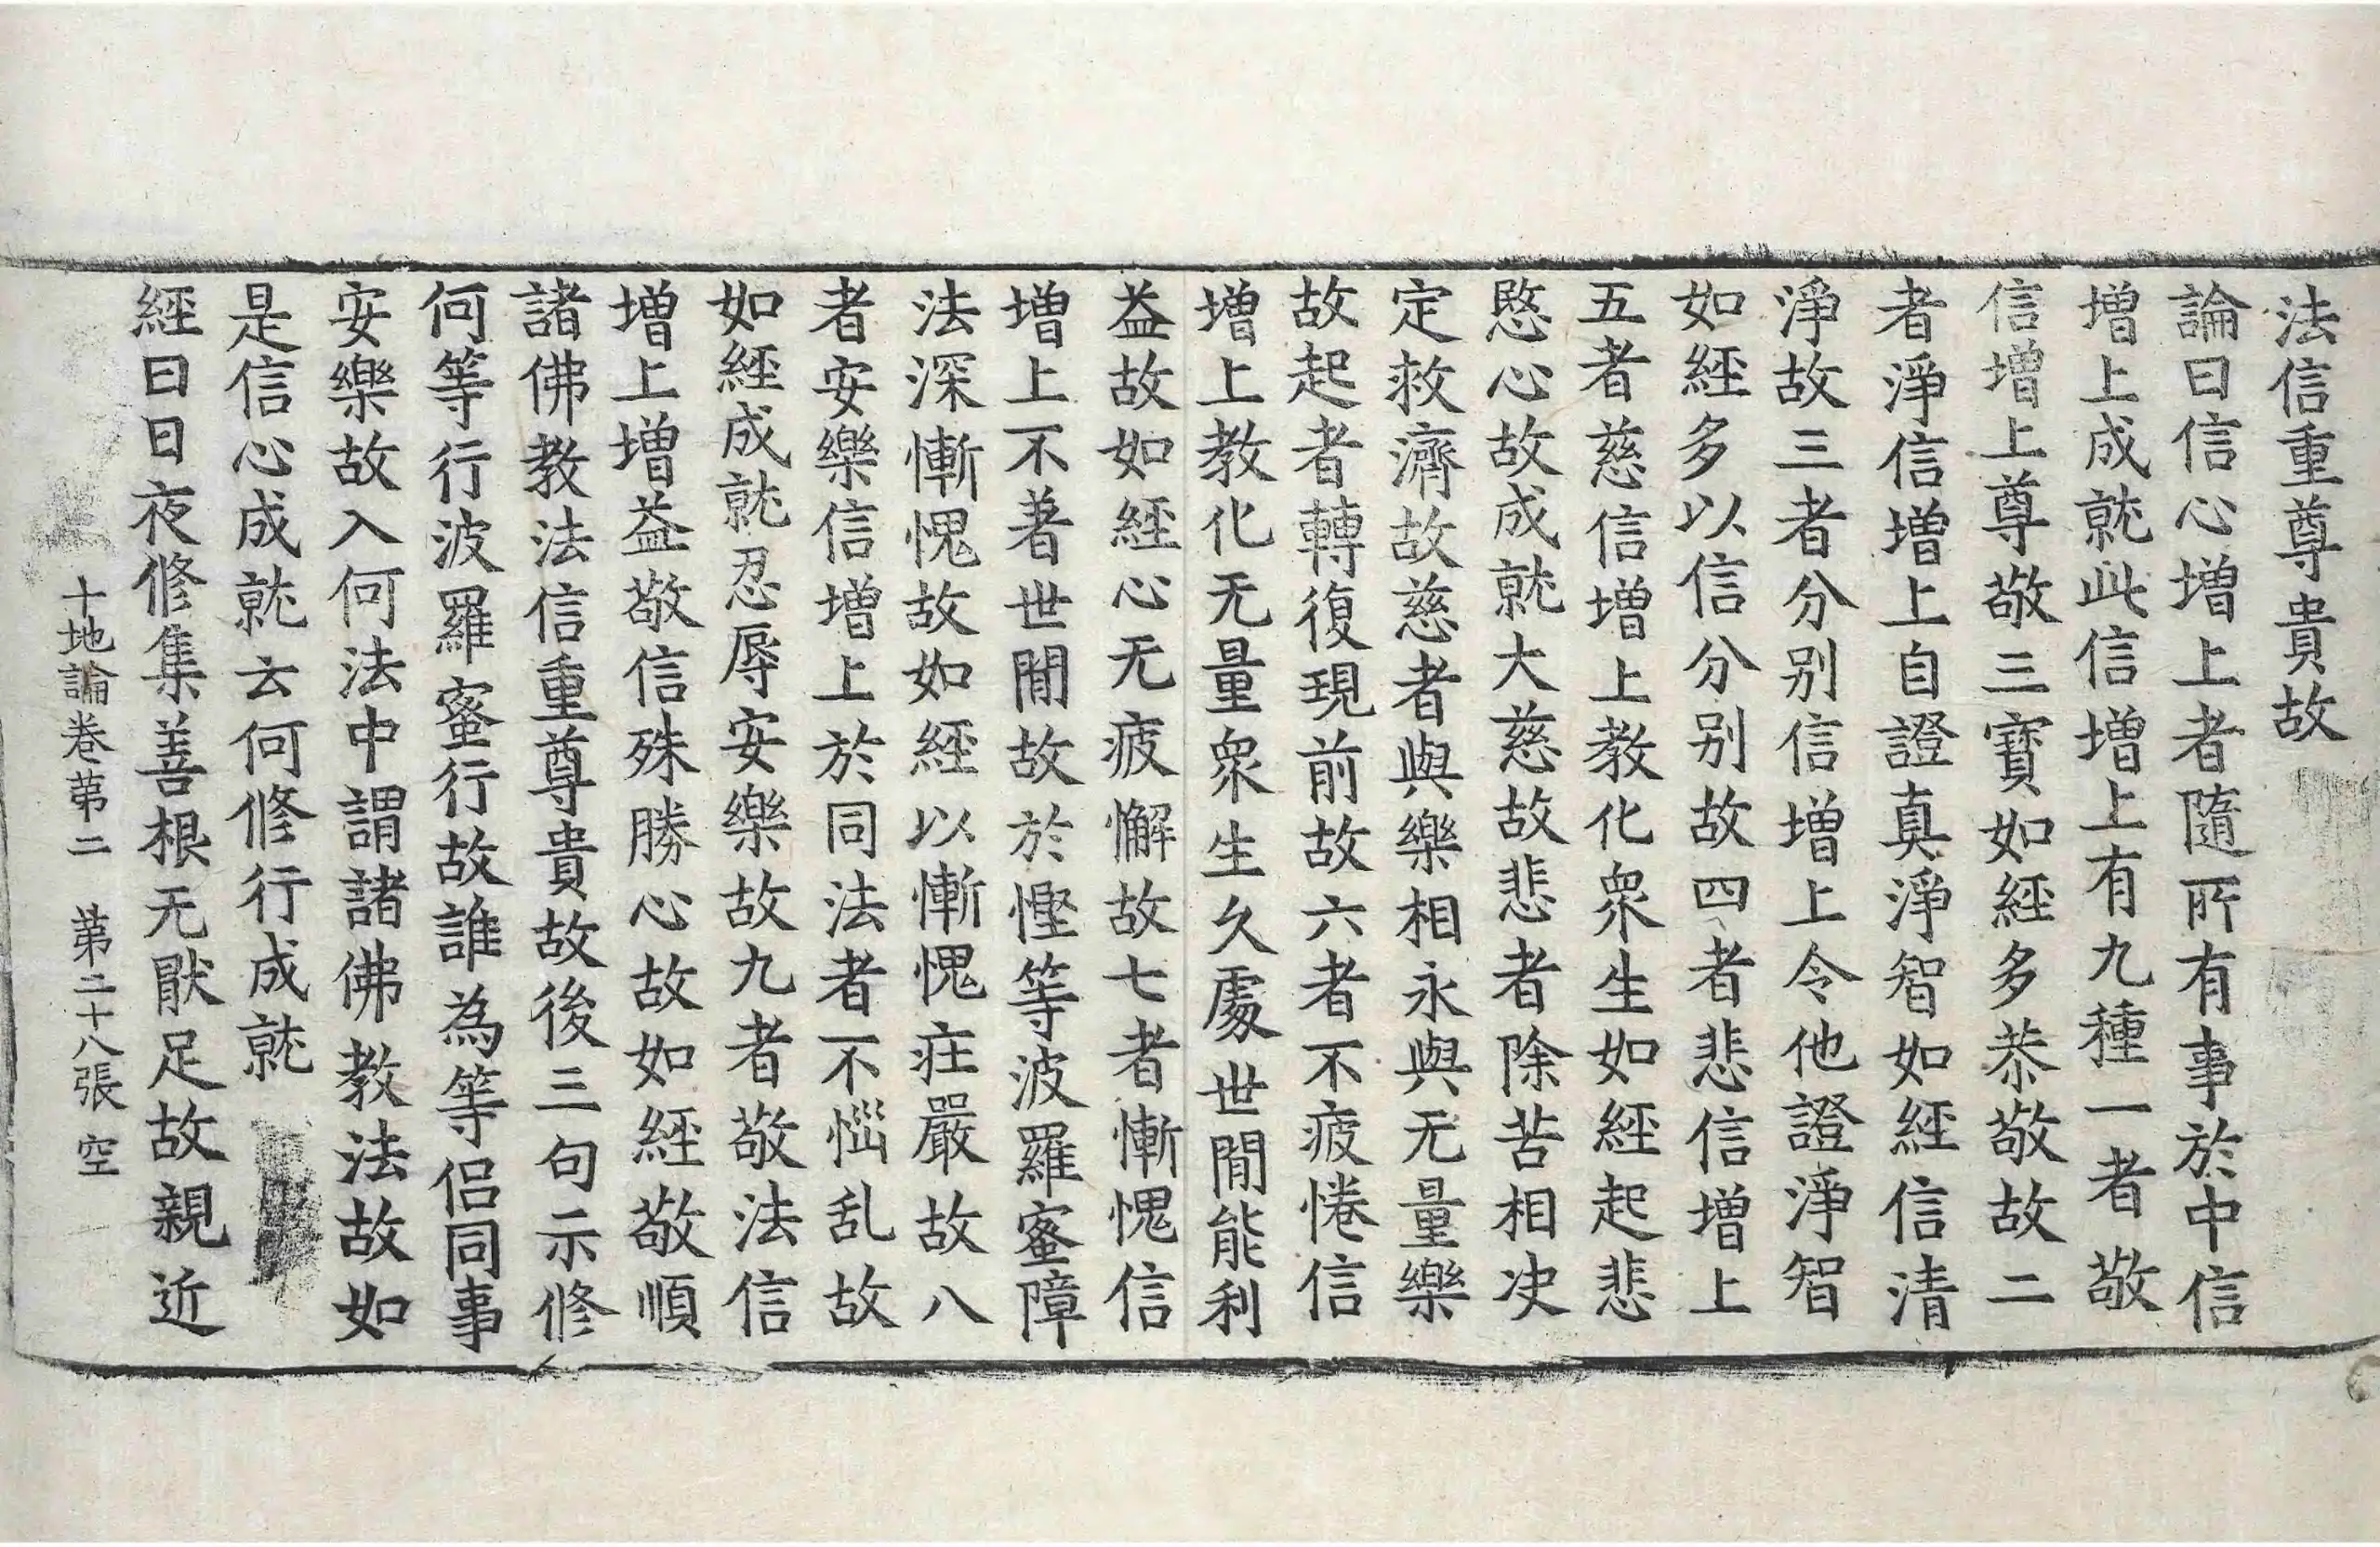 法信重尊貴故
論曰信心增上者隨所有事於中信
增上成就此信增上有九種一者敬
信增上尊敬三寶如經多恭敬故二
者淨信增上自證真淨智如經信清
淨故三者分別信增上令他證淨智
如經多以信分別故四者悲信增上
五者慈信增上教化衆生如經起悲
愍心故成就大慈故悲者除苦相决
定救濟故慈者與樂相永與无量樂
故起者轉復現前故六者不疲惓信
增上教化无量衆生久處世間能利
益故如經心无疲懈故七者慚愧信
增上不著世間故於慳等波羅蜜障
法深慚愧故如經以慚愧莊嚴故八
者安樂信增上於同法者不惱乱故
如經成就忍辱安樂故九者敬法信
增上增益敬信殊勝心故如經敬順
諸佛教法信重尊貴故後三句示修
何等行波羅蜜行故誰為等侣同事
安樂故入何法中謂諸佛教法故如
是信心成就云何修行成就
經曰日夜修集善根无猒足故親近
十地論卷苐二　苐二十八張　空